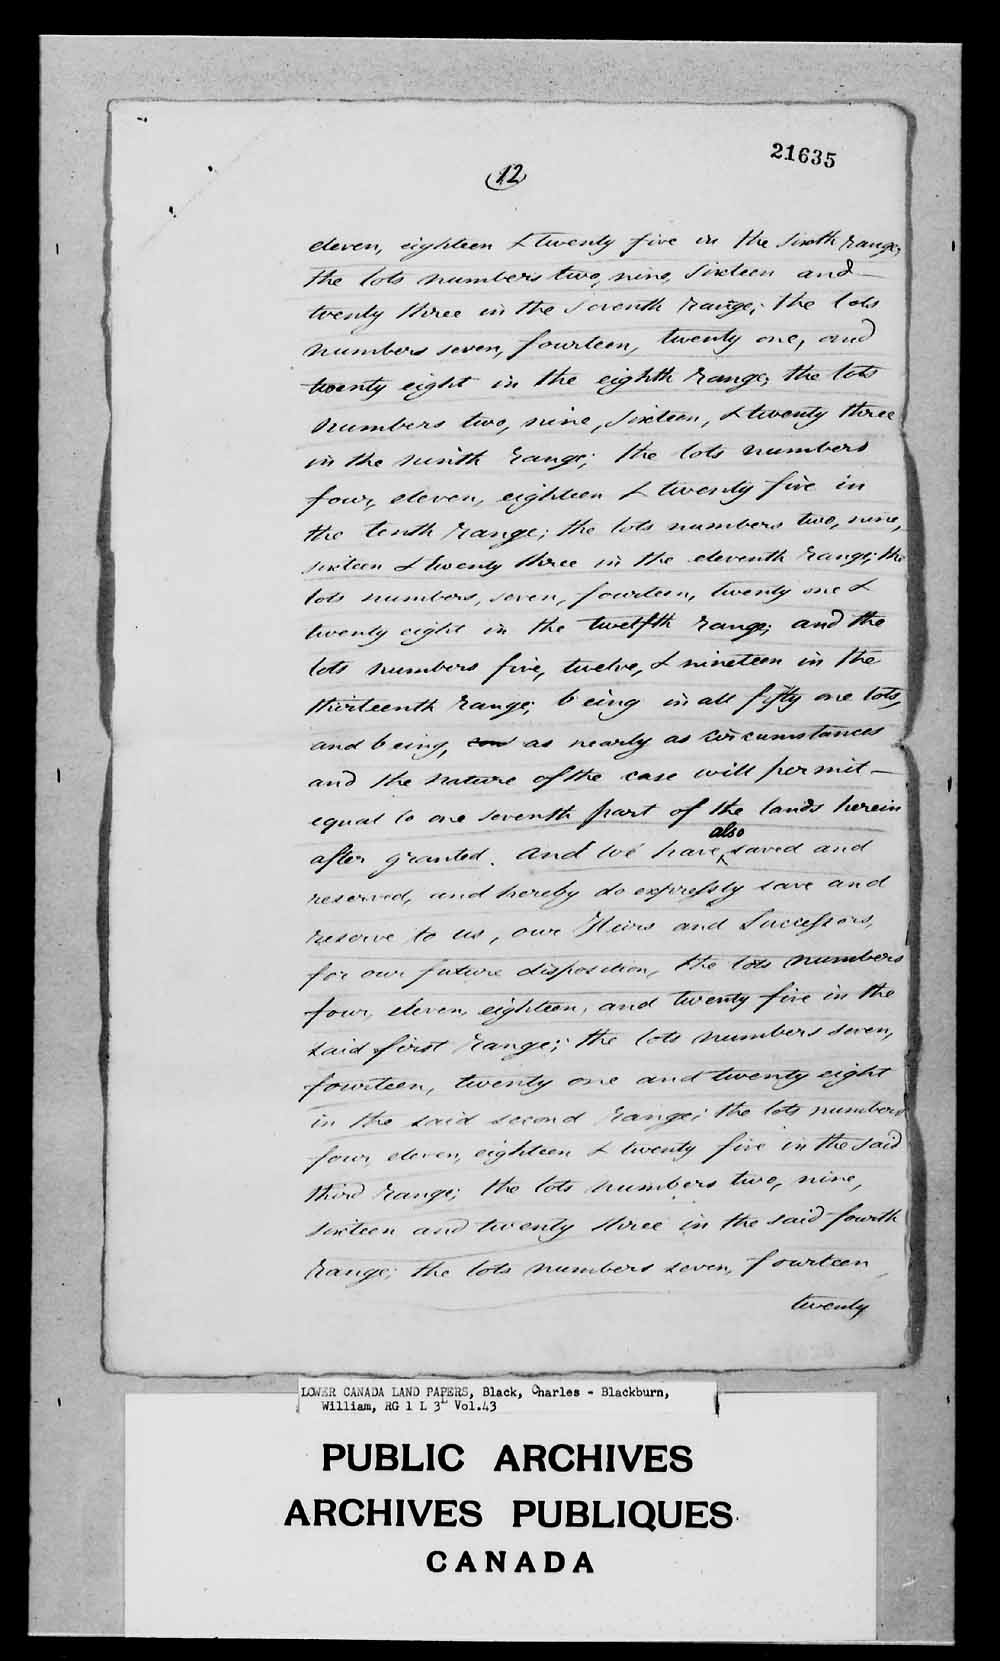 21635
(12)
eleven, eighteen & twenty five in the Sixth range;
the lots numbers two, nine, Sixteen and —
twenty three in the Seventh range; the lots
numbers seven, fourteen, twenty one, and
twenty eight in the eighth range; the lots
numbers two, nine, Sixteen, & twenty three
in the ninth range; the lots numbers
four, eleven, eighteen & twenty five in
the tenth range; the lots numbers two, nine,
sixteen & twenty three in the eleventh range; the
lots numbers, seven, fourteen, twenty one &
twenty eight in the twelfth range; and the
lots numbers five, twelve, & nineteen in the
thirteenth range; being in all fifty one lots,
and being, as nearly as circumstances
and the nature of the case will permit —
equal to one seventh part of the lands herein
after granted. And We have also saved and
reserved, and hereby do expressly save and
reserve to us, our Heirs and Successors,
for our future disposition, the lots numbers
four, eleven, eighteen, and twenty five in the
said first range; the lots numbers seven,
fourteen, twenty one and twenty eight
in the said second range; the lots numbers
four, eleven, eighteen & twenty five in the said
third range; the lots numbers two, nine,
sixteen and twenty three in the said fourth
range; the lots numbers seven, fourteen,
twenty
LOWER CANADA LAND PAPERS, Black, Charles - Blackburn,
William, RG 1 L 3L Vol.43
PUBLIC ARCHIVES
ARCHIVES PUBLIQUES
CANADA